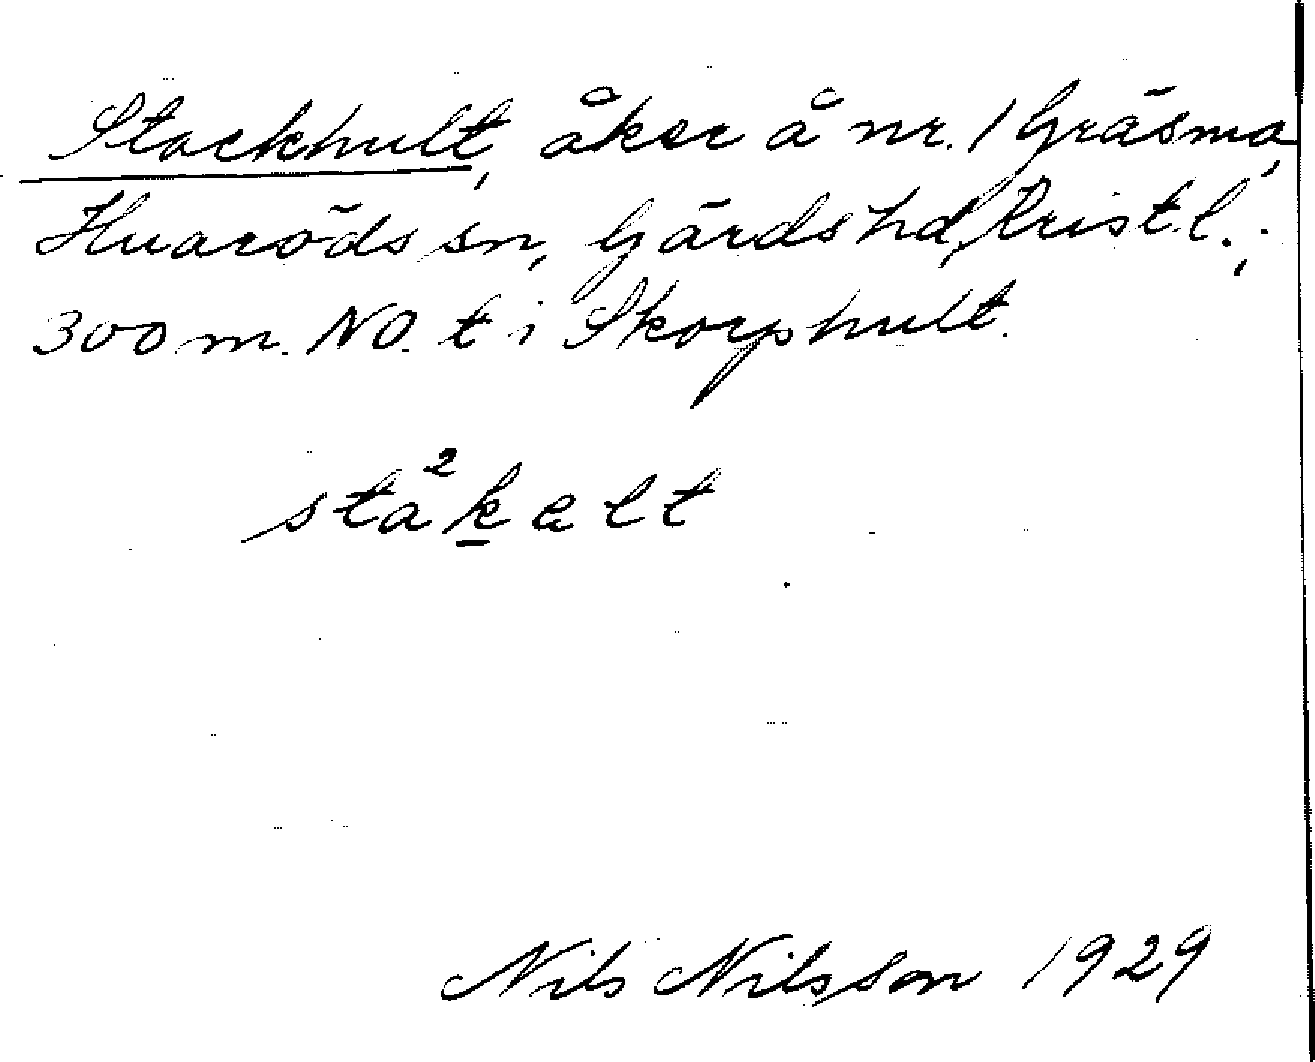 Stockhult, åker å nr. 1 Gräsma,
Huaröds sn, Gärds hd, Krist l.;
300 m. NO. t i Skorphult.
stå²kalt
Nils Nilsson 1929